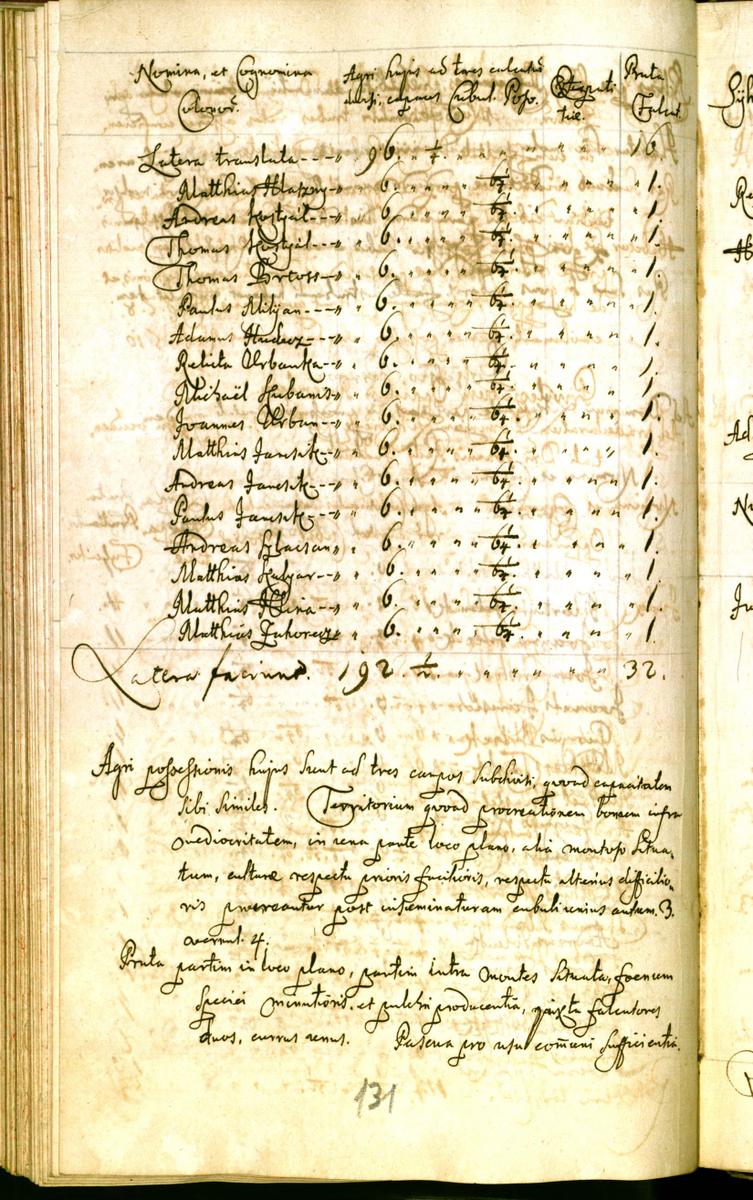 Nomina, et Cognomina Agri hujus ad tres calcatur. Prata
Colonor. capaces Cubul. Poson. Falcat.
Latera translata - - - 96. 16.
Matthias 6. 6¼. 1.
Andreas 6. 6¼. 1.
Thomas 6. 6¼. 1.
Thomas 6. 6¼. 1.
Paulus Milyan - - - 6. 6¼. 1.
Adamus Hudecz - - 6. 6¼. 1.
Relicta Urbanka - - 6. 6¼. 1.
Michaël 6. 6¼. 1.
Joannes Urban - - 6. 6¼. 1.
Matthias Jancsik - - 6. 6¼. 1.
Andreas Jancsik - - 6. 6¼. 1.
Paulus Jancsik - - 6. 6¼. 1.
Andreas 6. 6¼. 1.
Matthias 6. 6¼. 1.
Matthias Hlina - - 6. 6¼. 1.
Matthias Zahorecz 6. 6¼. 1.
Latera faciunt. 192. ½. 32.
Agri possessionis hujus sunt ad tres campos subdivisi, quoad capacitatem
sibi similes. Territorium quoad procreationem bonum infra
mediocritatem, in una parte loco plano, alia montoso situa-
tum, culturæ respectu prioris facilioris, respectu alterius difficilio-
ris procreantur post inseminaturam cubuli unius autum. 3.
vernal. 4.
Prata partim in loco plano, partim intra montes situata, foenum
speciei minutioris, et pulchri producentia, juxta falcatores
duos, currus unus. Pascua pro usu com̃uni sufficientia.
131